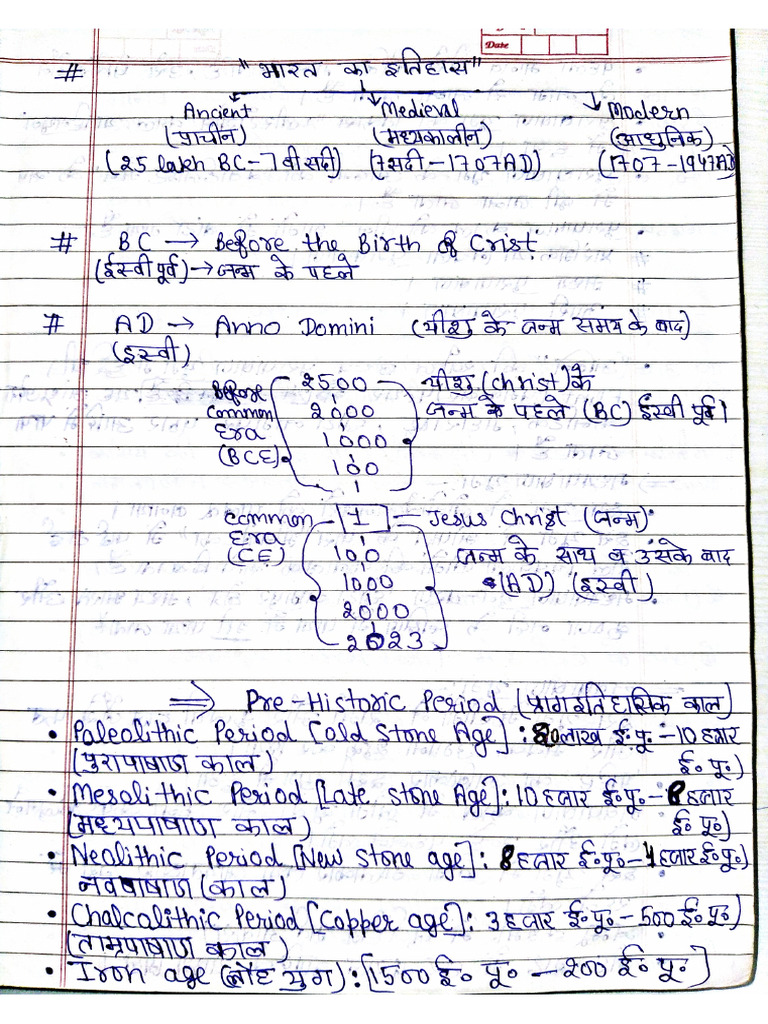 Date
# "भारत का इतिहास"
Ancient Medieval Modern
(प्राचीन) (मध्यकालीन) (आधुनिक)
(25 lakh BC-7वी सदी) (7सदी-1707AD) (1707-1947AD)
# BC → Before the Birth of Crist
(ईस्वी पूर्व) → जन्म के पहले
# AD → Anno Domini (यीशु के जन्म समय के बाद)
(इस्वी)
Before 2500 यीशु (christ) के
common 2000 जन्म के पहले (BC) ईस्वी पूर्व।
Era 1000
(BCE) 100
1
common - 1 = Jesus Christ (जन्म)
Era
(CE) 100 जन्म के साथ व उसके बाद
1000 (AD) (इस्वी)
2000
2023
⇒ Pre-Historic Period (प्रागइतिहासिक काल)
• Paleolithic Period [old Stone Age] : लाख ई॰पू॰-10 हजार
(पुरापाषाण काल) ई॰पू॰)
• Mesolithic Period [Late Stone Age] : 10 हजार ई॰पू॰-8 हजार
(मध्यपाषाण काल) ई॰पू॰)
• Neolithic Period [New Stone age] : 8 हजार ई॰पू॰-4 हजार ई॰पू॰)
नवपाषाण (काल)
• Chalcalithic Period [Copper age] : 3 हजार ई॰पू॰-500 ई॰पू॰)
(ताम्रपाषाण काल)
• Iron age (लौह युग) : [1500 ई॰ पू॰ - 200 ई॰ पू॰]